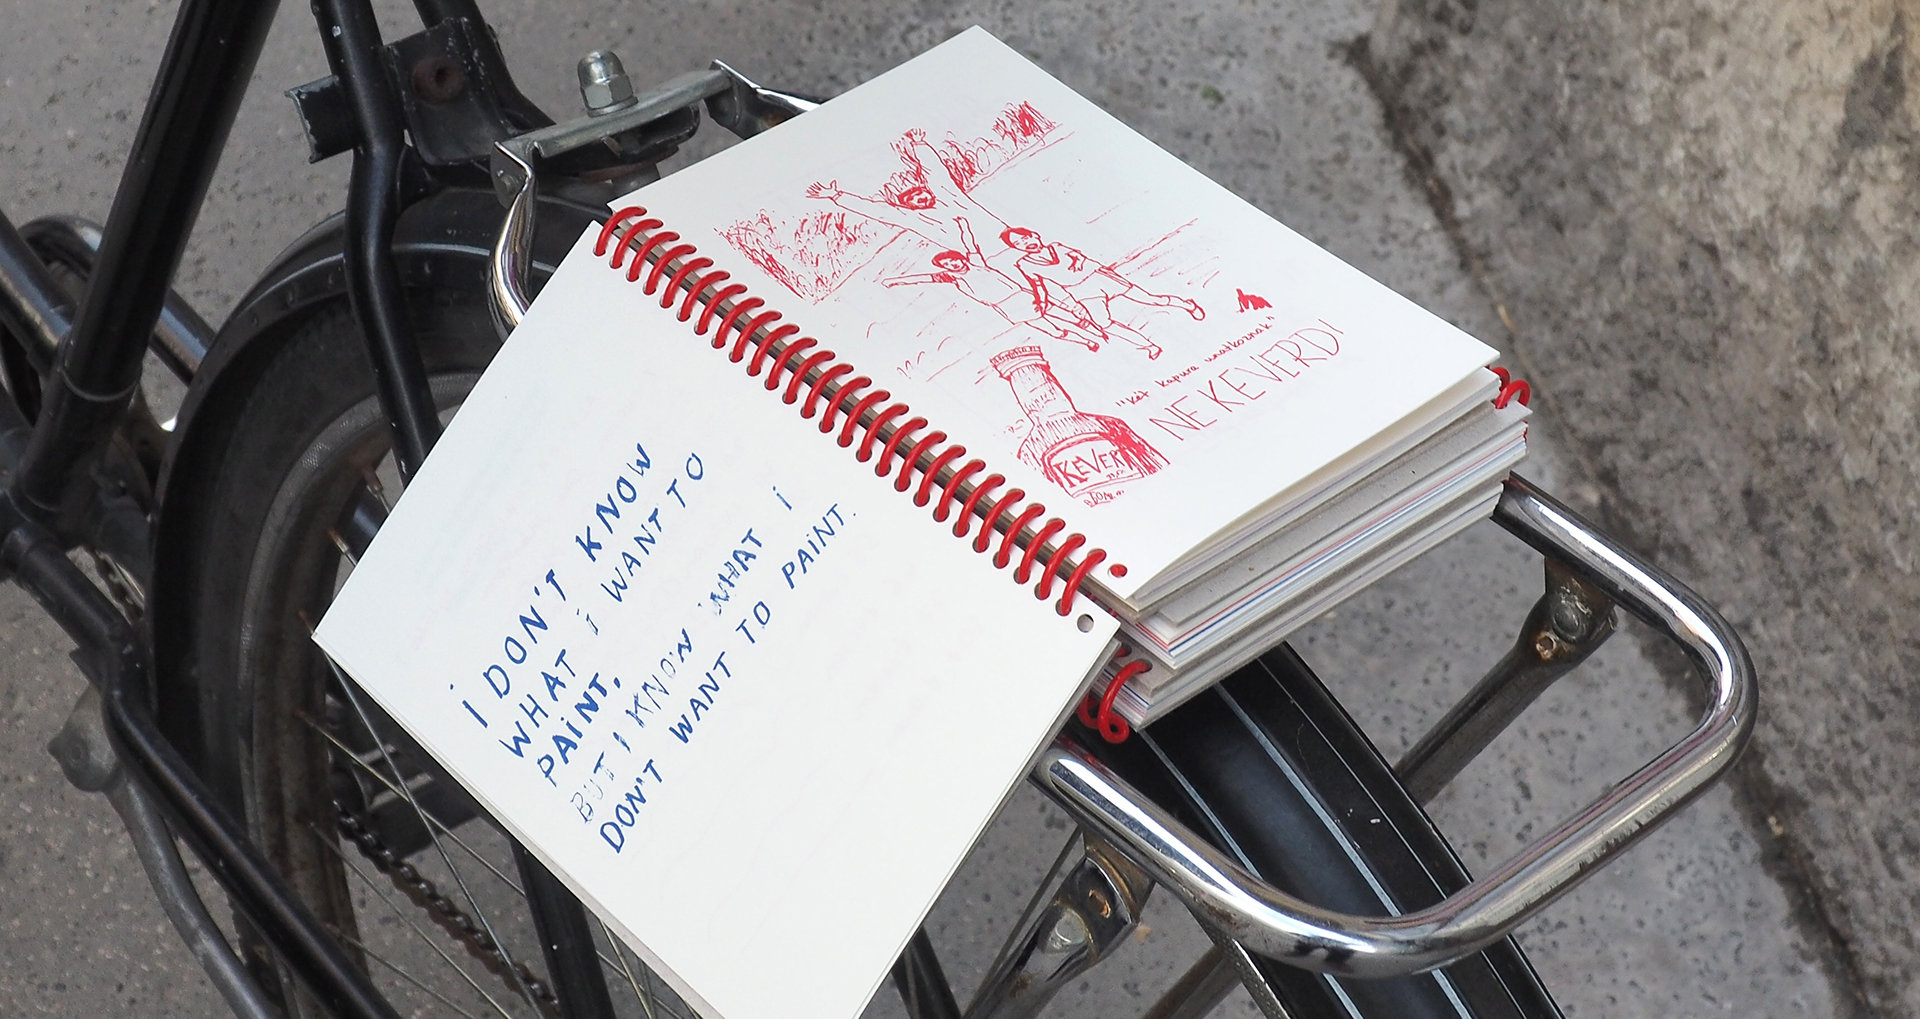 i DON'T KNOW
WHAT i WANT TO
PAiNT,
BUT I KNOW WHAT i
DON'T WANT TO PAiNT.
"két kapura unatkoznak"
NE KEVERD!
KEVERT